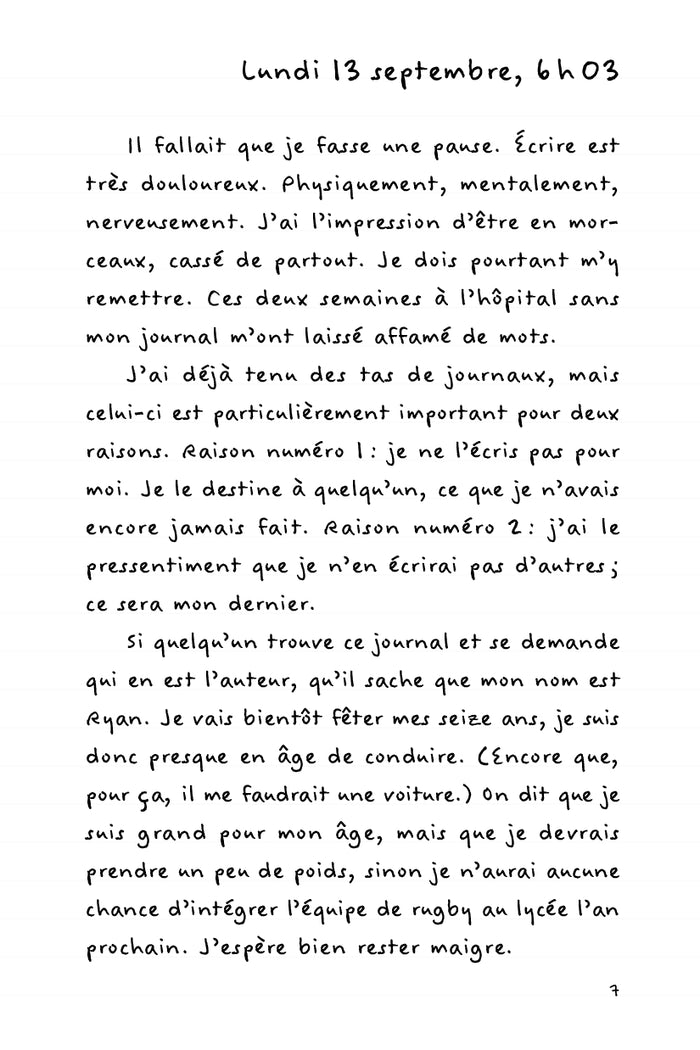 Lundi 13 septembre, 6 h 03
Il fallait que je fasse une pause. Écrire est
très douloureux. Physiquement, mentalement,
nerveusement. J'ai l'impression d'être en mor-
ceaux, cassé de partout. Je dois pourtant m'y
remettre. Ces deux semaines à l'hôpital sans
mon journal m'ont laissé affamé de mots.
J'ai déjà tenu des tas de journaux, mais
celui-ci est particulièrement important pour deux
raisons. Raison numéro 1 : je ne l'écris pas pour
moi. Je le destine à quelqu'un, ce que je n'avais
encore jamais fait. Raison numéro 2 : j'ai le
pressentiment que je n'en écrirai pas d'autres ;
ce sera mon dernier.
Si quelqu'un trouve ce journal et se demande
qui en est l'auteur, qu'il sache que mon nom est
Ryan. Je vais bientôt fêter mes seize ans, je suis
donc presque en âge de conduire. (Encore que,
pour ça, il me faudrait une voiture.) On dit que je
suis grand pour mon âge, mais que je devrais
prendre un peu de poids, sinon je n'aurai aucune
chance d'intégrer l'équipe de rugby au lycée l'an
prochain. J'espère bien rester maigre.
7